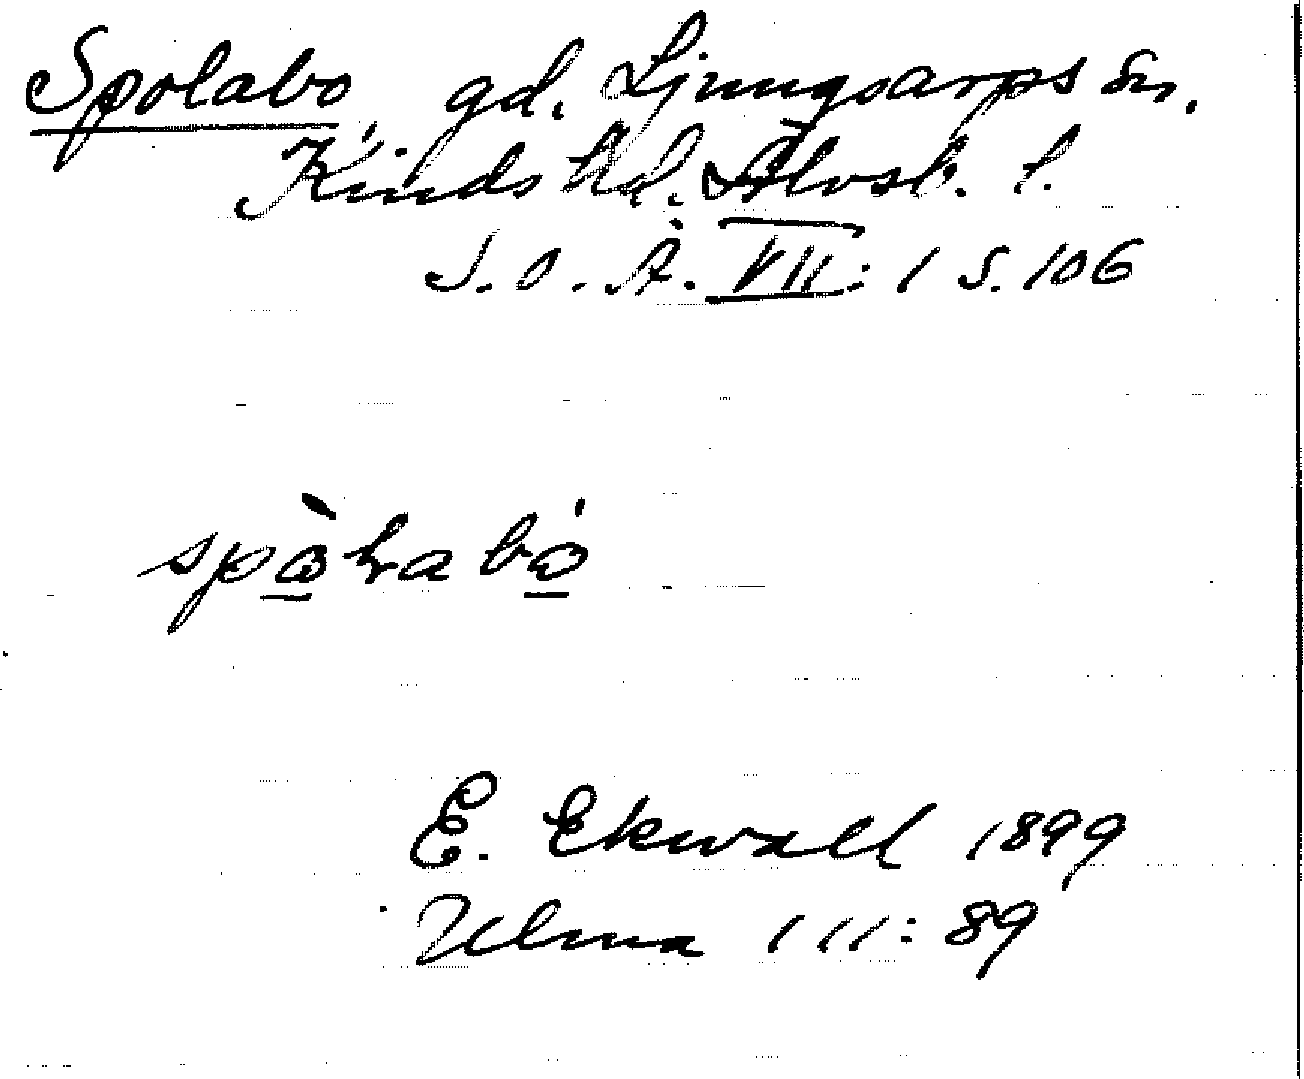 Spolabo, gd. Ljungsarps sn.
Kinds hd. Älvsb. l.
S. O. Ä. VII: 1 S. 106
E. Ekwall 1899
Ulma 111: 89